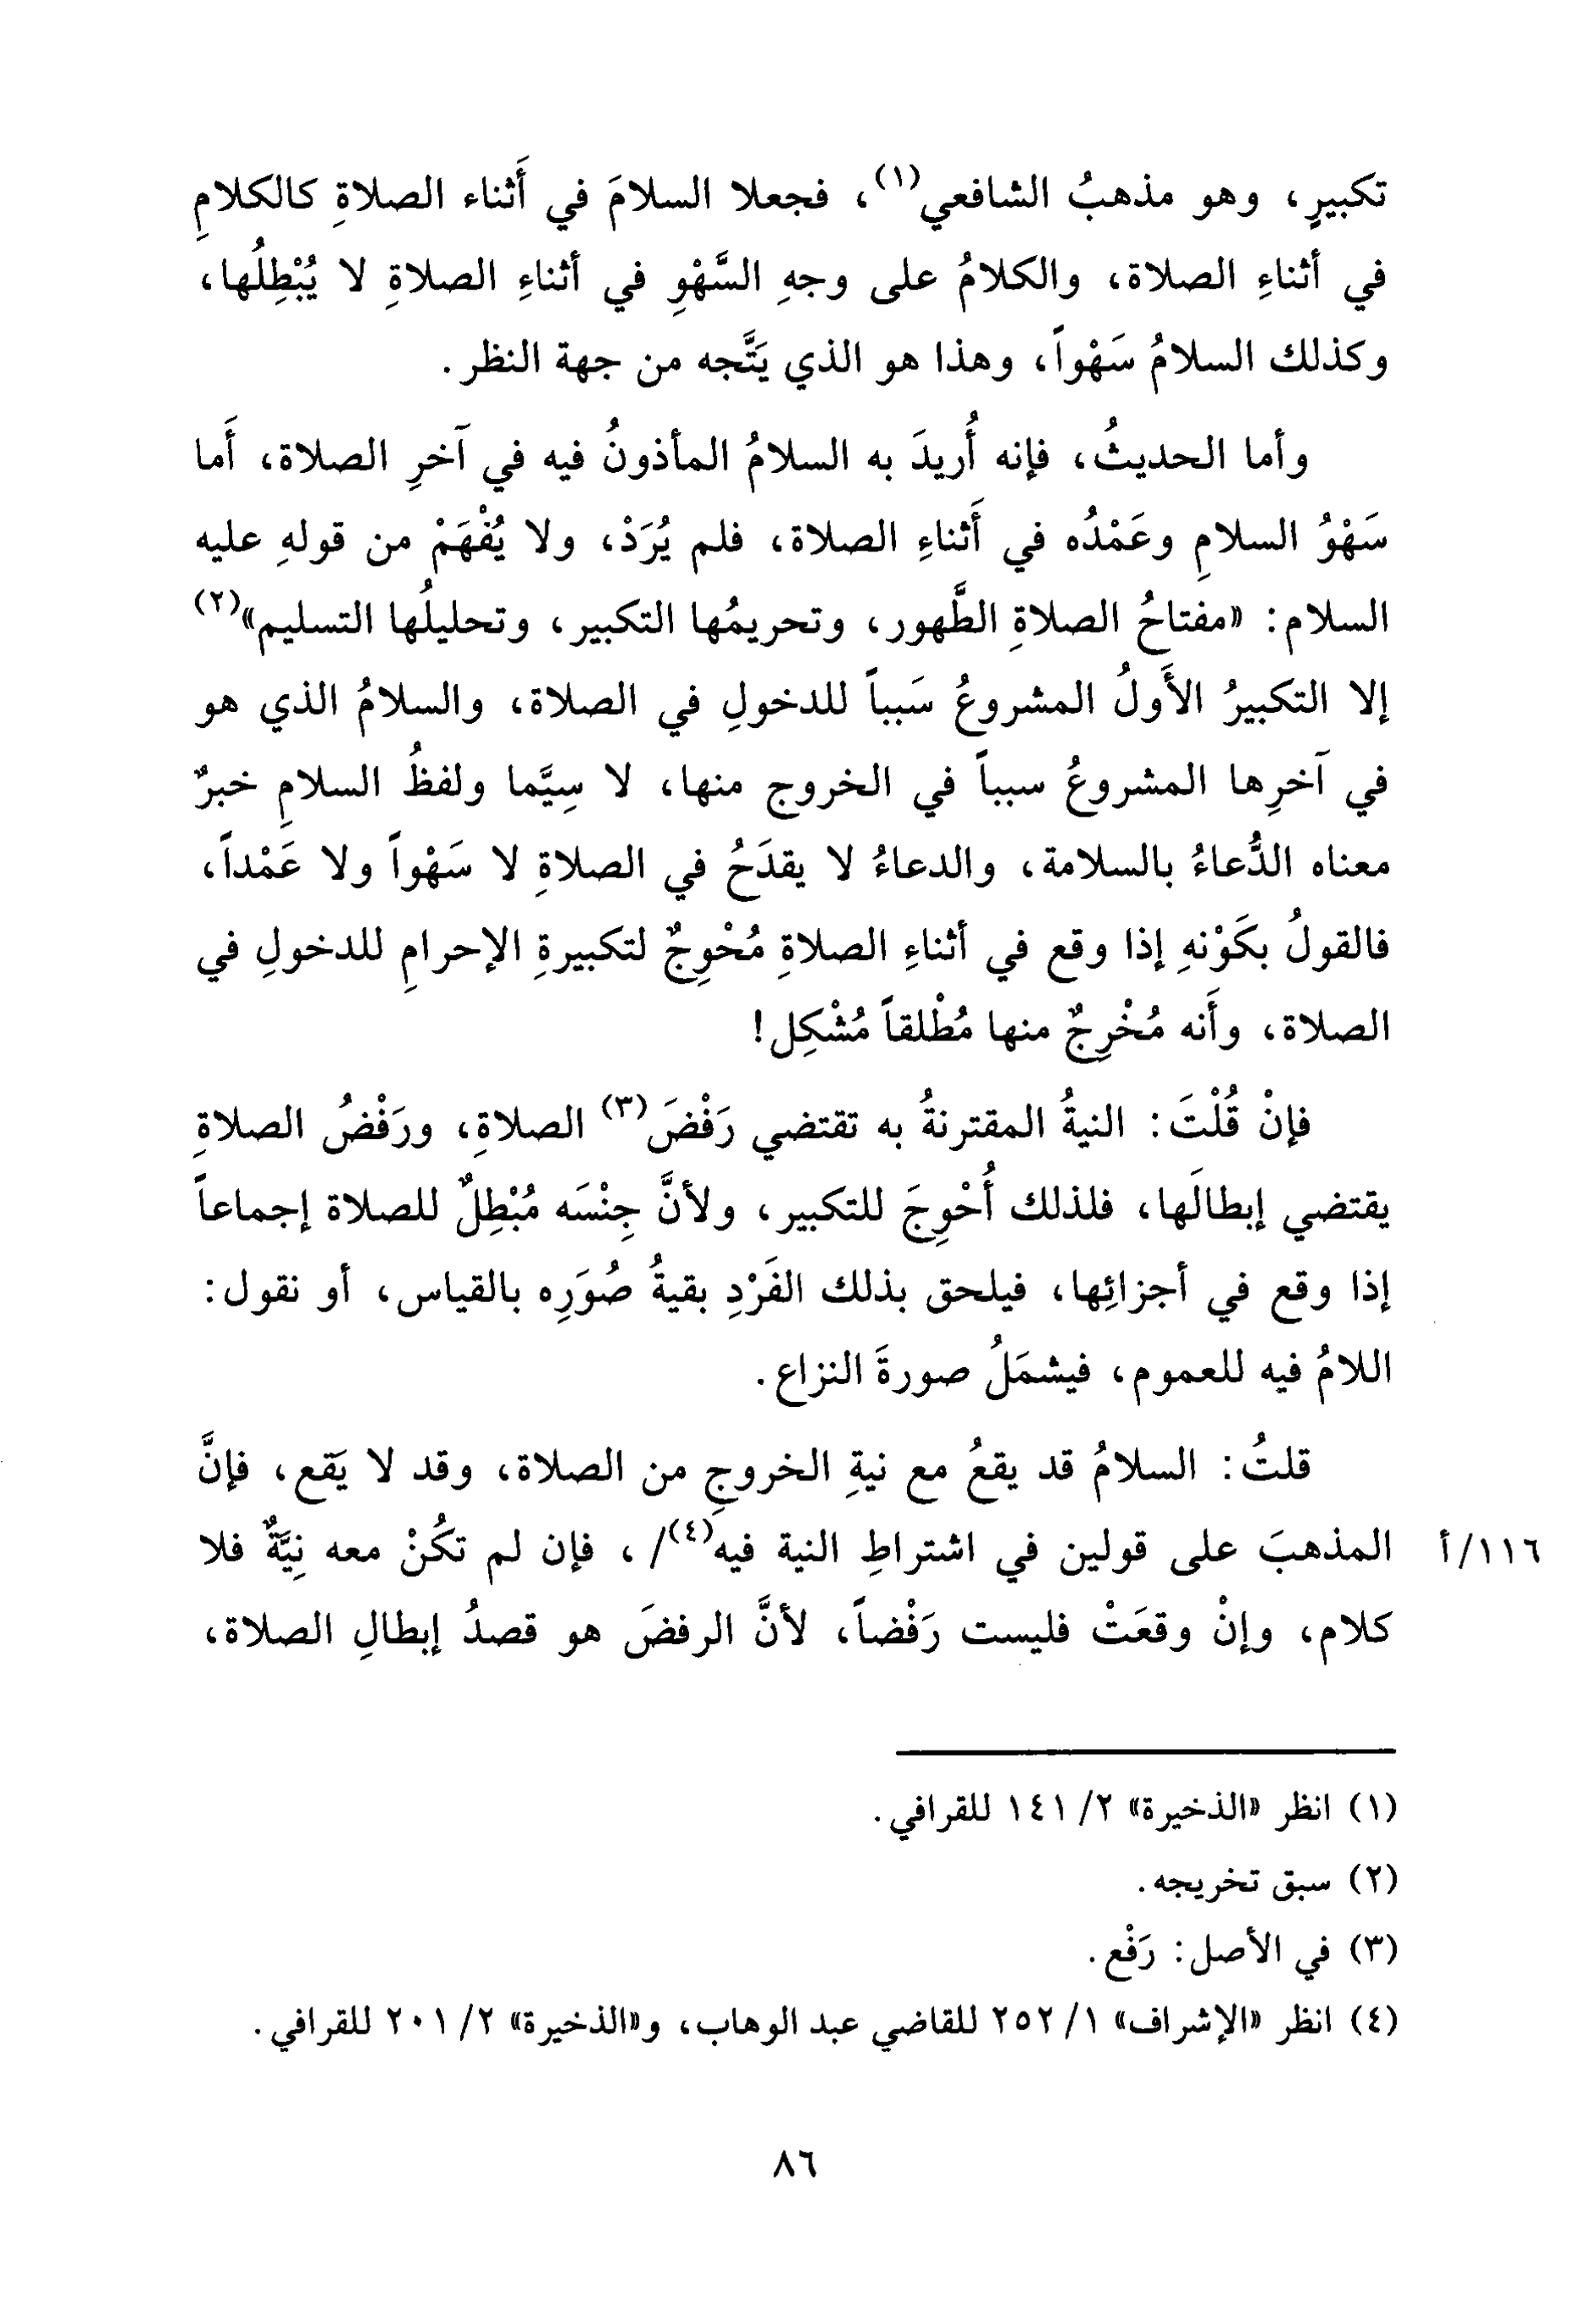 تكبيرٍ، وهو مذهبُ الشافعي(١)، فجعلا السلامَ في أَثناء الصلاةِ كالكلامِ
في أثناءِ الصلاة، والكلامُ على وجهِ السَّهْوِ في أثناءِ الصلاةِ لا يُبْطِلُها،
وكذلك السلامُ سَهْواً، وهذا هو الذي يَتَّجه من جهة النظر.
وأما الحديثُ، فإنه أُريدَ به السلامُ المأذونُ فيه في آخرِ الصلاة، أَما
سَهْوُ السلامِ وعَمْدُه في أَثناءِ الصلاة، فلم يُرَدْ، ولا يُفْهَمْ من قولهِ عليه
السلام: «مفتاحُ الصلاةِ الطَّهور، وتحريمُها التكبير، وتحليلُها التسليم»(٢)
إلا التكبيرُ الأَولُ المشروعُ سَبباً للدخولِ في الصلاة، والسلامُ الذي هو
في آخرِها المشروعُ سبباً في الخروج منها، لا سِيَّما ولفظُ السلامِ خبرٌ
معناه الدُّعاءُ بالسلامة، والدعاءُ لا يقدَحُ في الصلاةِ لا سَهْواً ولا عَمْداً،
فالقولُ بكَوْنهِ إذا وقع في أثناءِ الصلاةِ مُحْوِجٌ لتكبيرةِ الإحرامِ للدخولِ في
الصلاة، وأَنه مُخْرِجٌ منها مُطْلقاً مُشْكِل!
فإنْ قُلْتَ: النيةُ المقترنةُ به تقتضي رَفْضَ(٣) الصلاةِ، ورَفْضُ الصلاةِ
يقتضي إبطالَها، فلذلك أُحْوِجَ للتكبير، ولأنَّ جِنْسَه مُبْطِلٌ للصلاة إجماعاً
إذا وقع في أجزائِها، فيلحق بذلك الفَرْدِ بقيةُ صُوَرِه بالقياس، أو نقول:
اللامُ فيه للعموم، فيشمَلُ صورةَ النزاع.
قلتُ: السلامُ قد يقعُ مع نيةِ الخروجِ من الصلاة، وقد لا يَقع، فإنَّ
المذهبَ على قولين في اشتراطِ النية فيه(٤)/، فإن لم تكُنْ معه نِيَّةٌ فلا ١١٦/أ
كلام، وإنْ وقعَتْ فليست رَفْضاً، لأنَّ الرفضَ هو قصدُ إبطالِ الصلاة،
(١) انظر «الذخيرة» ٢/ ١٤١ للقرافي.
(٢) سبق تخريجه.
(٣) في الأصل: رَفْع.
(٤) انظر «الإشراف» ١/ ٢٥٢ للقاضي عبد الوهاب، و«الذخيرة» ٢/ ٢٠١ للقرافي.
٨٦